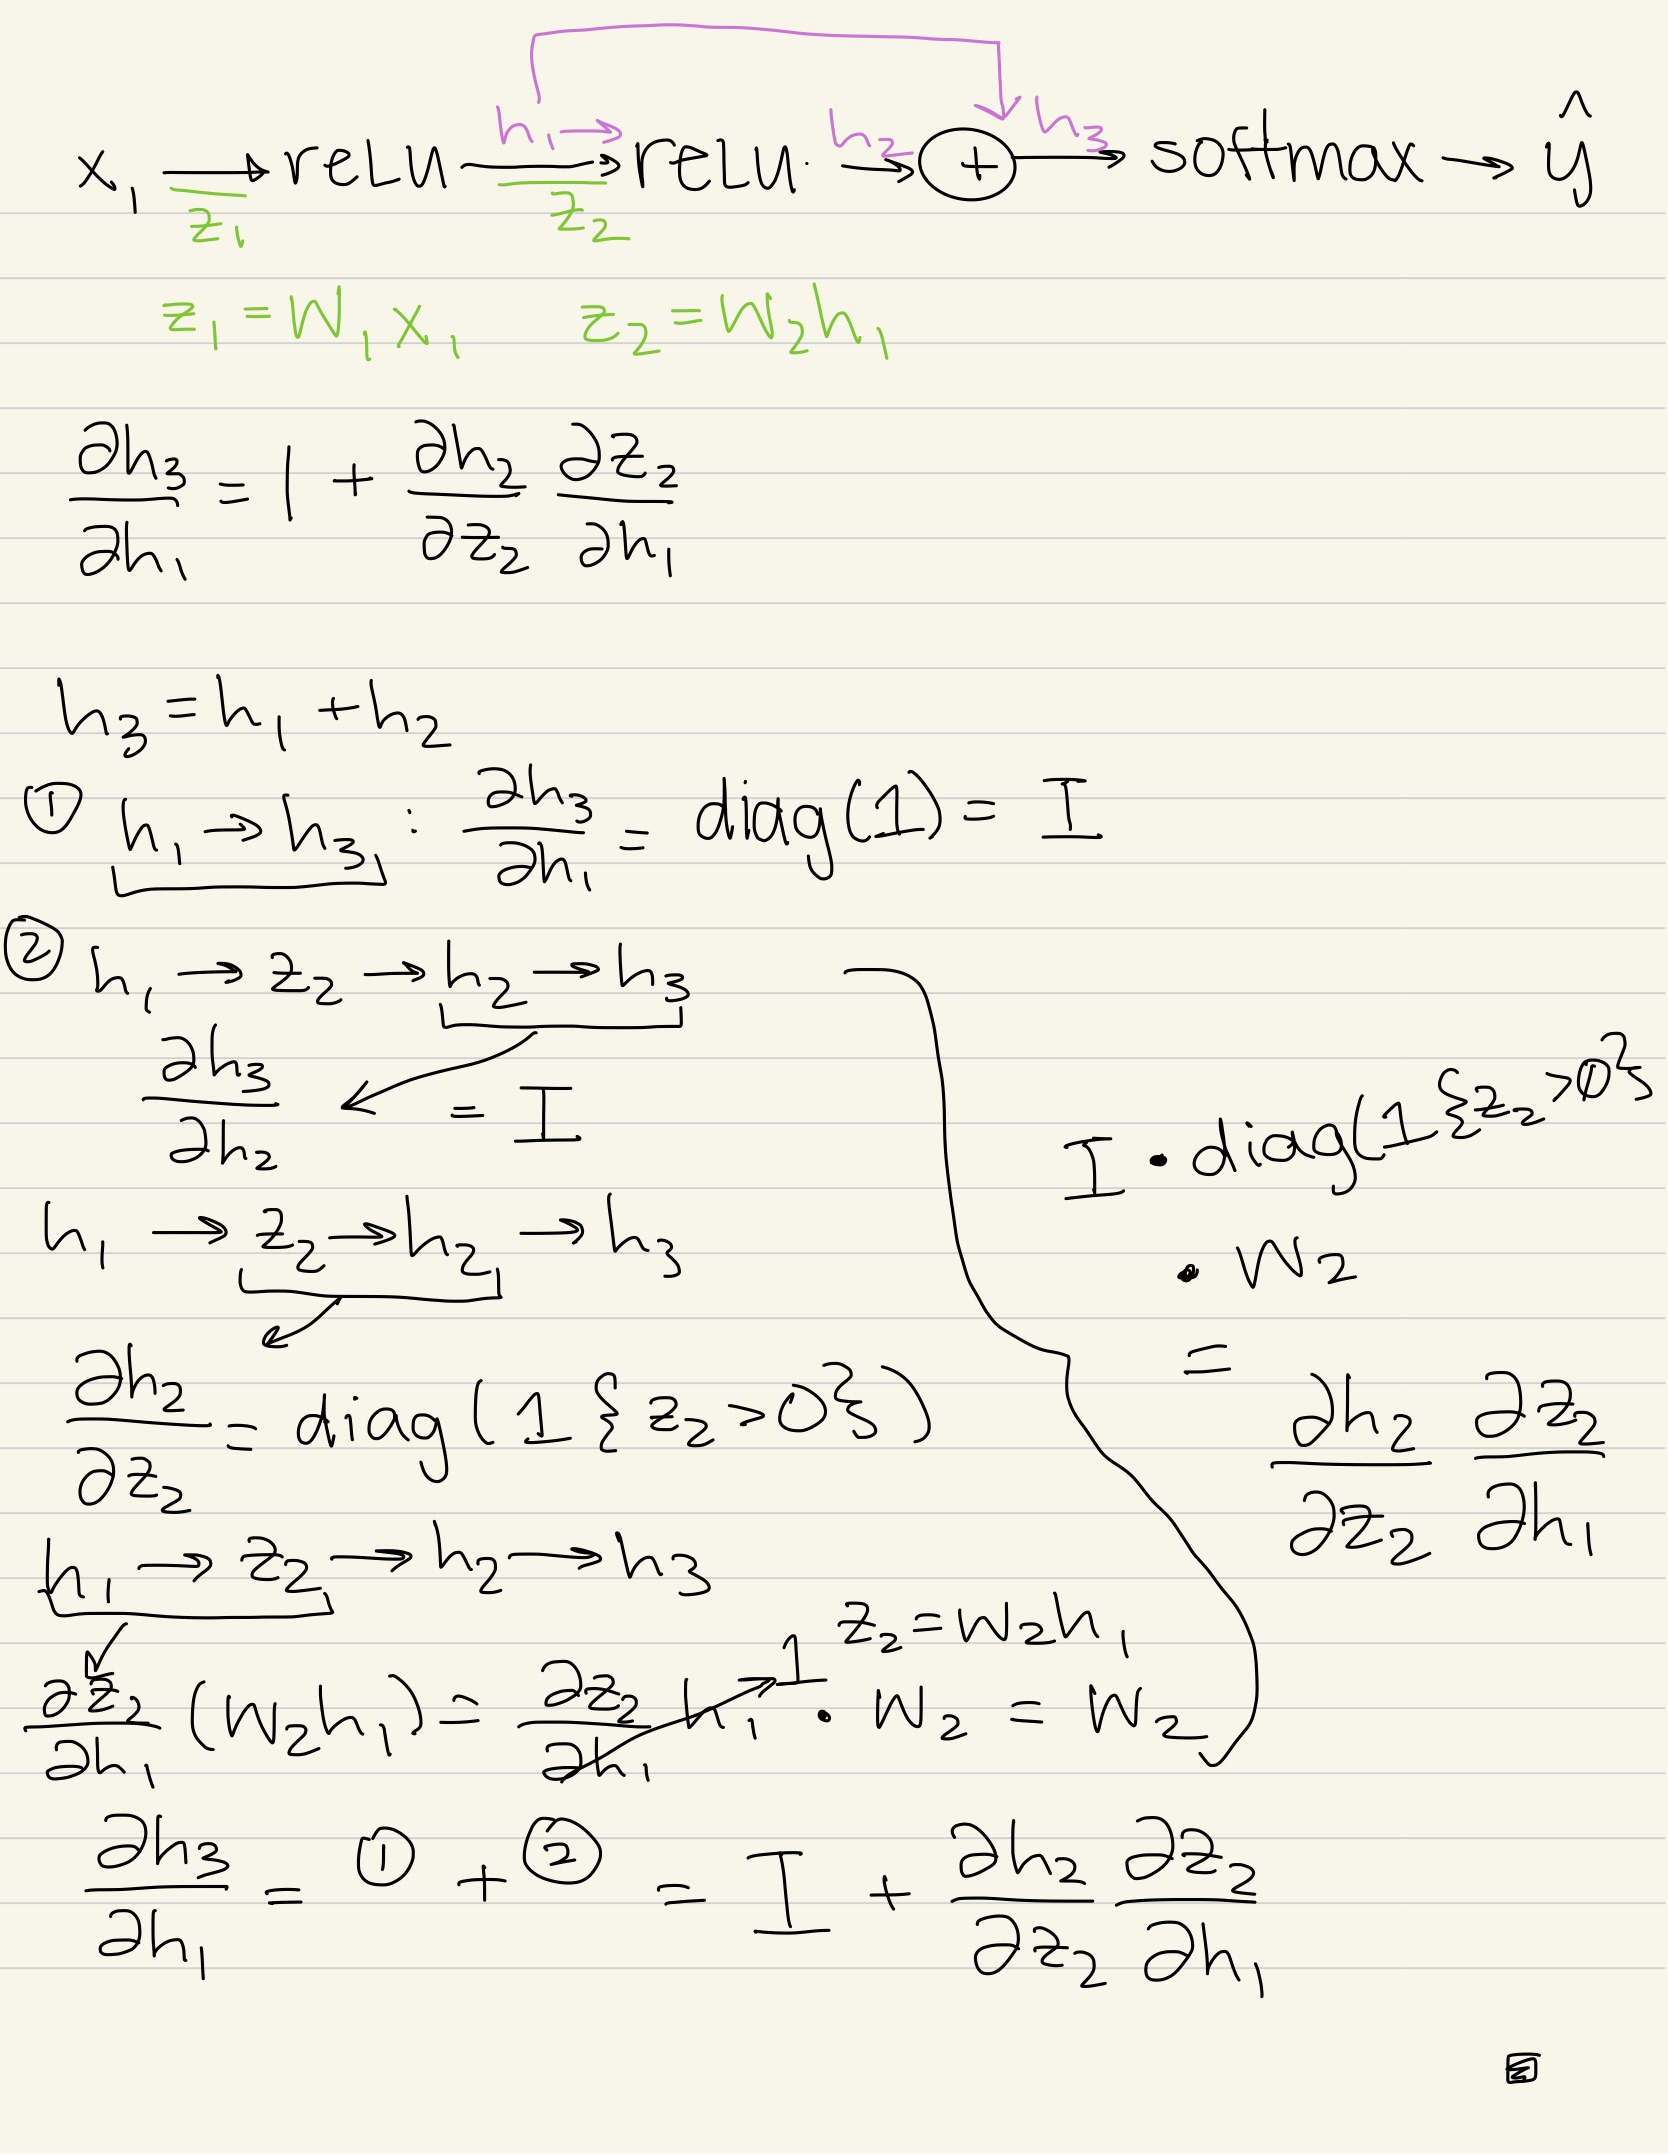 h₁ → h₂ h₃
x₁ → reLU → reLU. → ⊕ → softmax → ŷ
z₁ z₂
z₁ = W₁x₁ z₂ = W₂h₁
∂h₃/∂h₁ = 1 + ∂h₂/∂z₂ ∂z₂/∂h₁
h₃ = h₁ + h₂
① h₁ → h₃ : ∂h₃/∂h₁ = diag(1) = I
② h₁ → z₂ → h₂ → h₃
∂h₃/∂h₂ = I
h₁ → z₂ → h₂ → h₃
∂h₂/∂z₂ = diag(1{z₂>0})
h₁ → z₂ → h₂ → h₃
z₂ = W₂h₁
∂z₂/∂h₁ (W₂h₁) = ∂z₂/∂h₁ h₁ → 1 • W₂ = W₂
I • diag(1{z₂>0}
• W₂
= ∂h₂/∂z₂ ∂z₂/∂h₁
∂h₃/∂h₁ = ① + ② = I + ∂h₂/∂z₂ ∂z₂/∂h₁